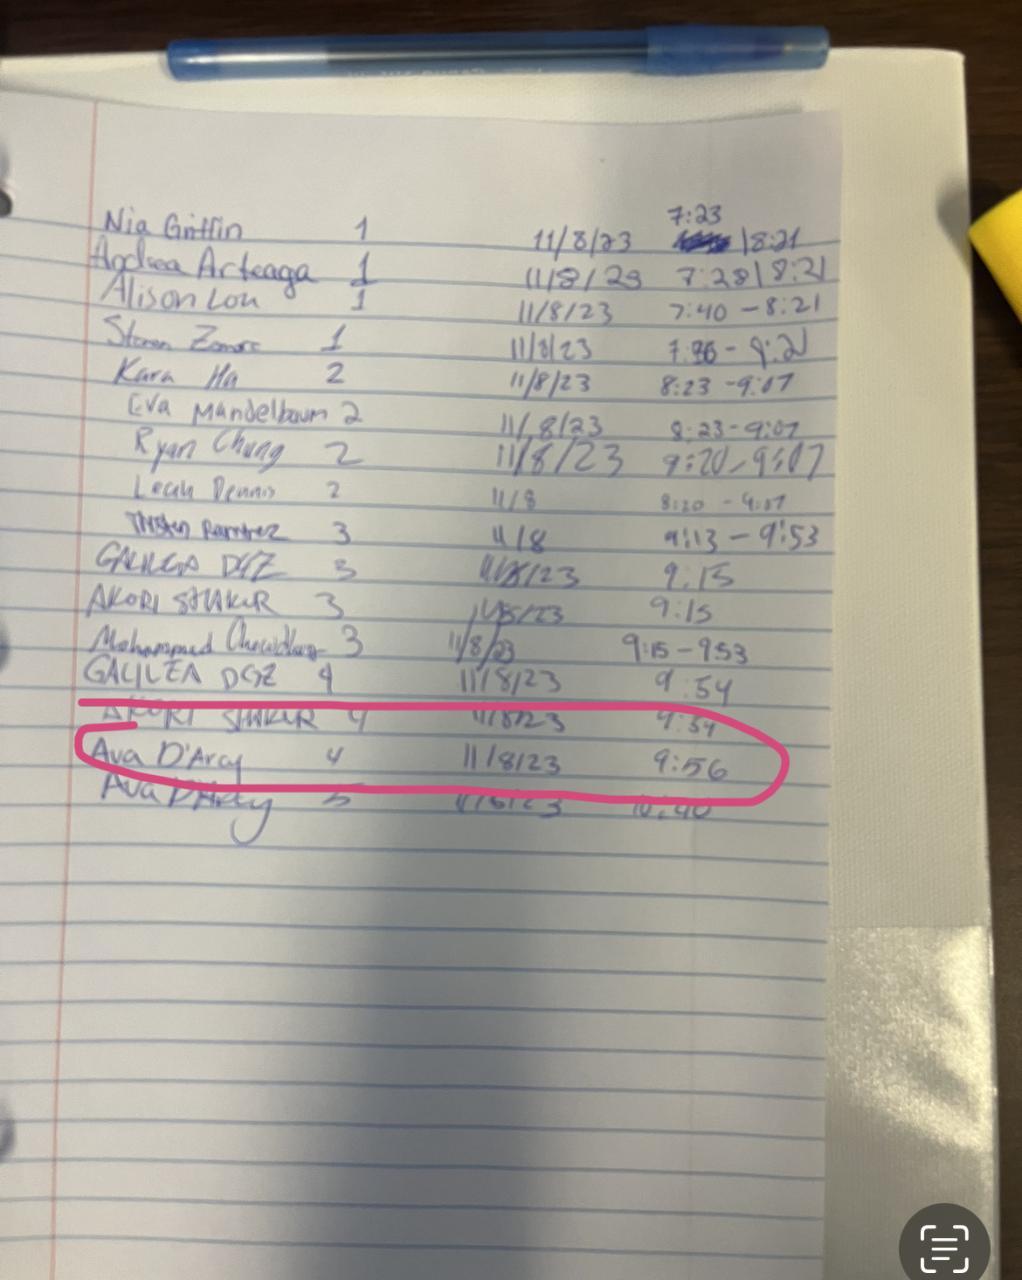 7:23
Nia Griffin 1 11/8/23 | 8:21
Andrea Arteaga 1 11/8/23 7:28 | 8:21
Alison Lou 1 11/8/23 7:40 - 8:21
Steven 1 11/8/23
Kara Ha 2 11/8/23 8:23 - 9:07
Eva Mandelbaum 2 11/8/23 8:23 - 9:07
Ryan Chung 2 11/8/23 9:07
Leah Dennis 2 11/8 8:20 - 9:07
Ramirez 3 11/8 9:13 - 9:53
GALILEA DGZ 3 11/8/23 9:15
AKORI SHAKUR 3 11/8/23 9:15
Mohammed 3 11/8/23 9:15 - 953
GALILEA DGZ 4 11/8/23 9:54
AKORI SHAKUR 4 11/8/23 9:54
Ava D'Arcy 4 11/8/23 9:56
Ava D'Arcy 5 11/8/23 10:40